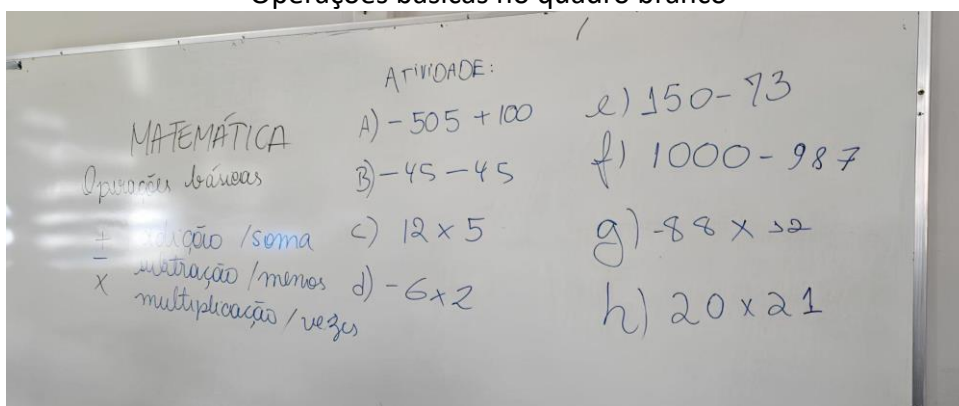 Operações básicas no quadro branco
MATEMÁTICA
Operações básicas
+ adição /soma
- subtração /menos
x multiplicação /vezes
ATIVIDADE:
A) -505 + 100
B) -45 -45
c) 12 x 5
d) -6x2
e) 150-73
f) 1000-987
g) -88 x 12
h) 20 x 21